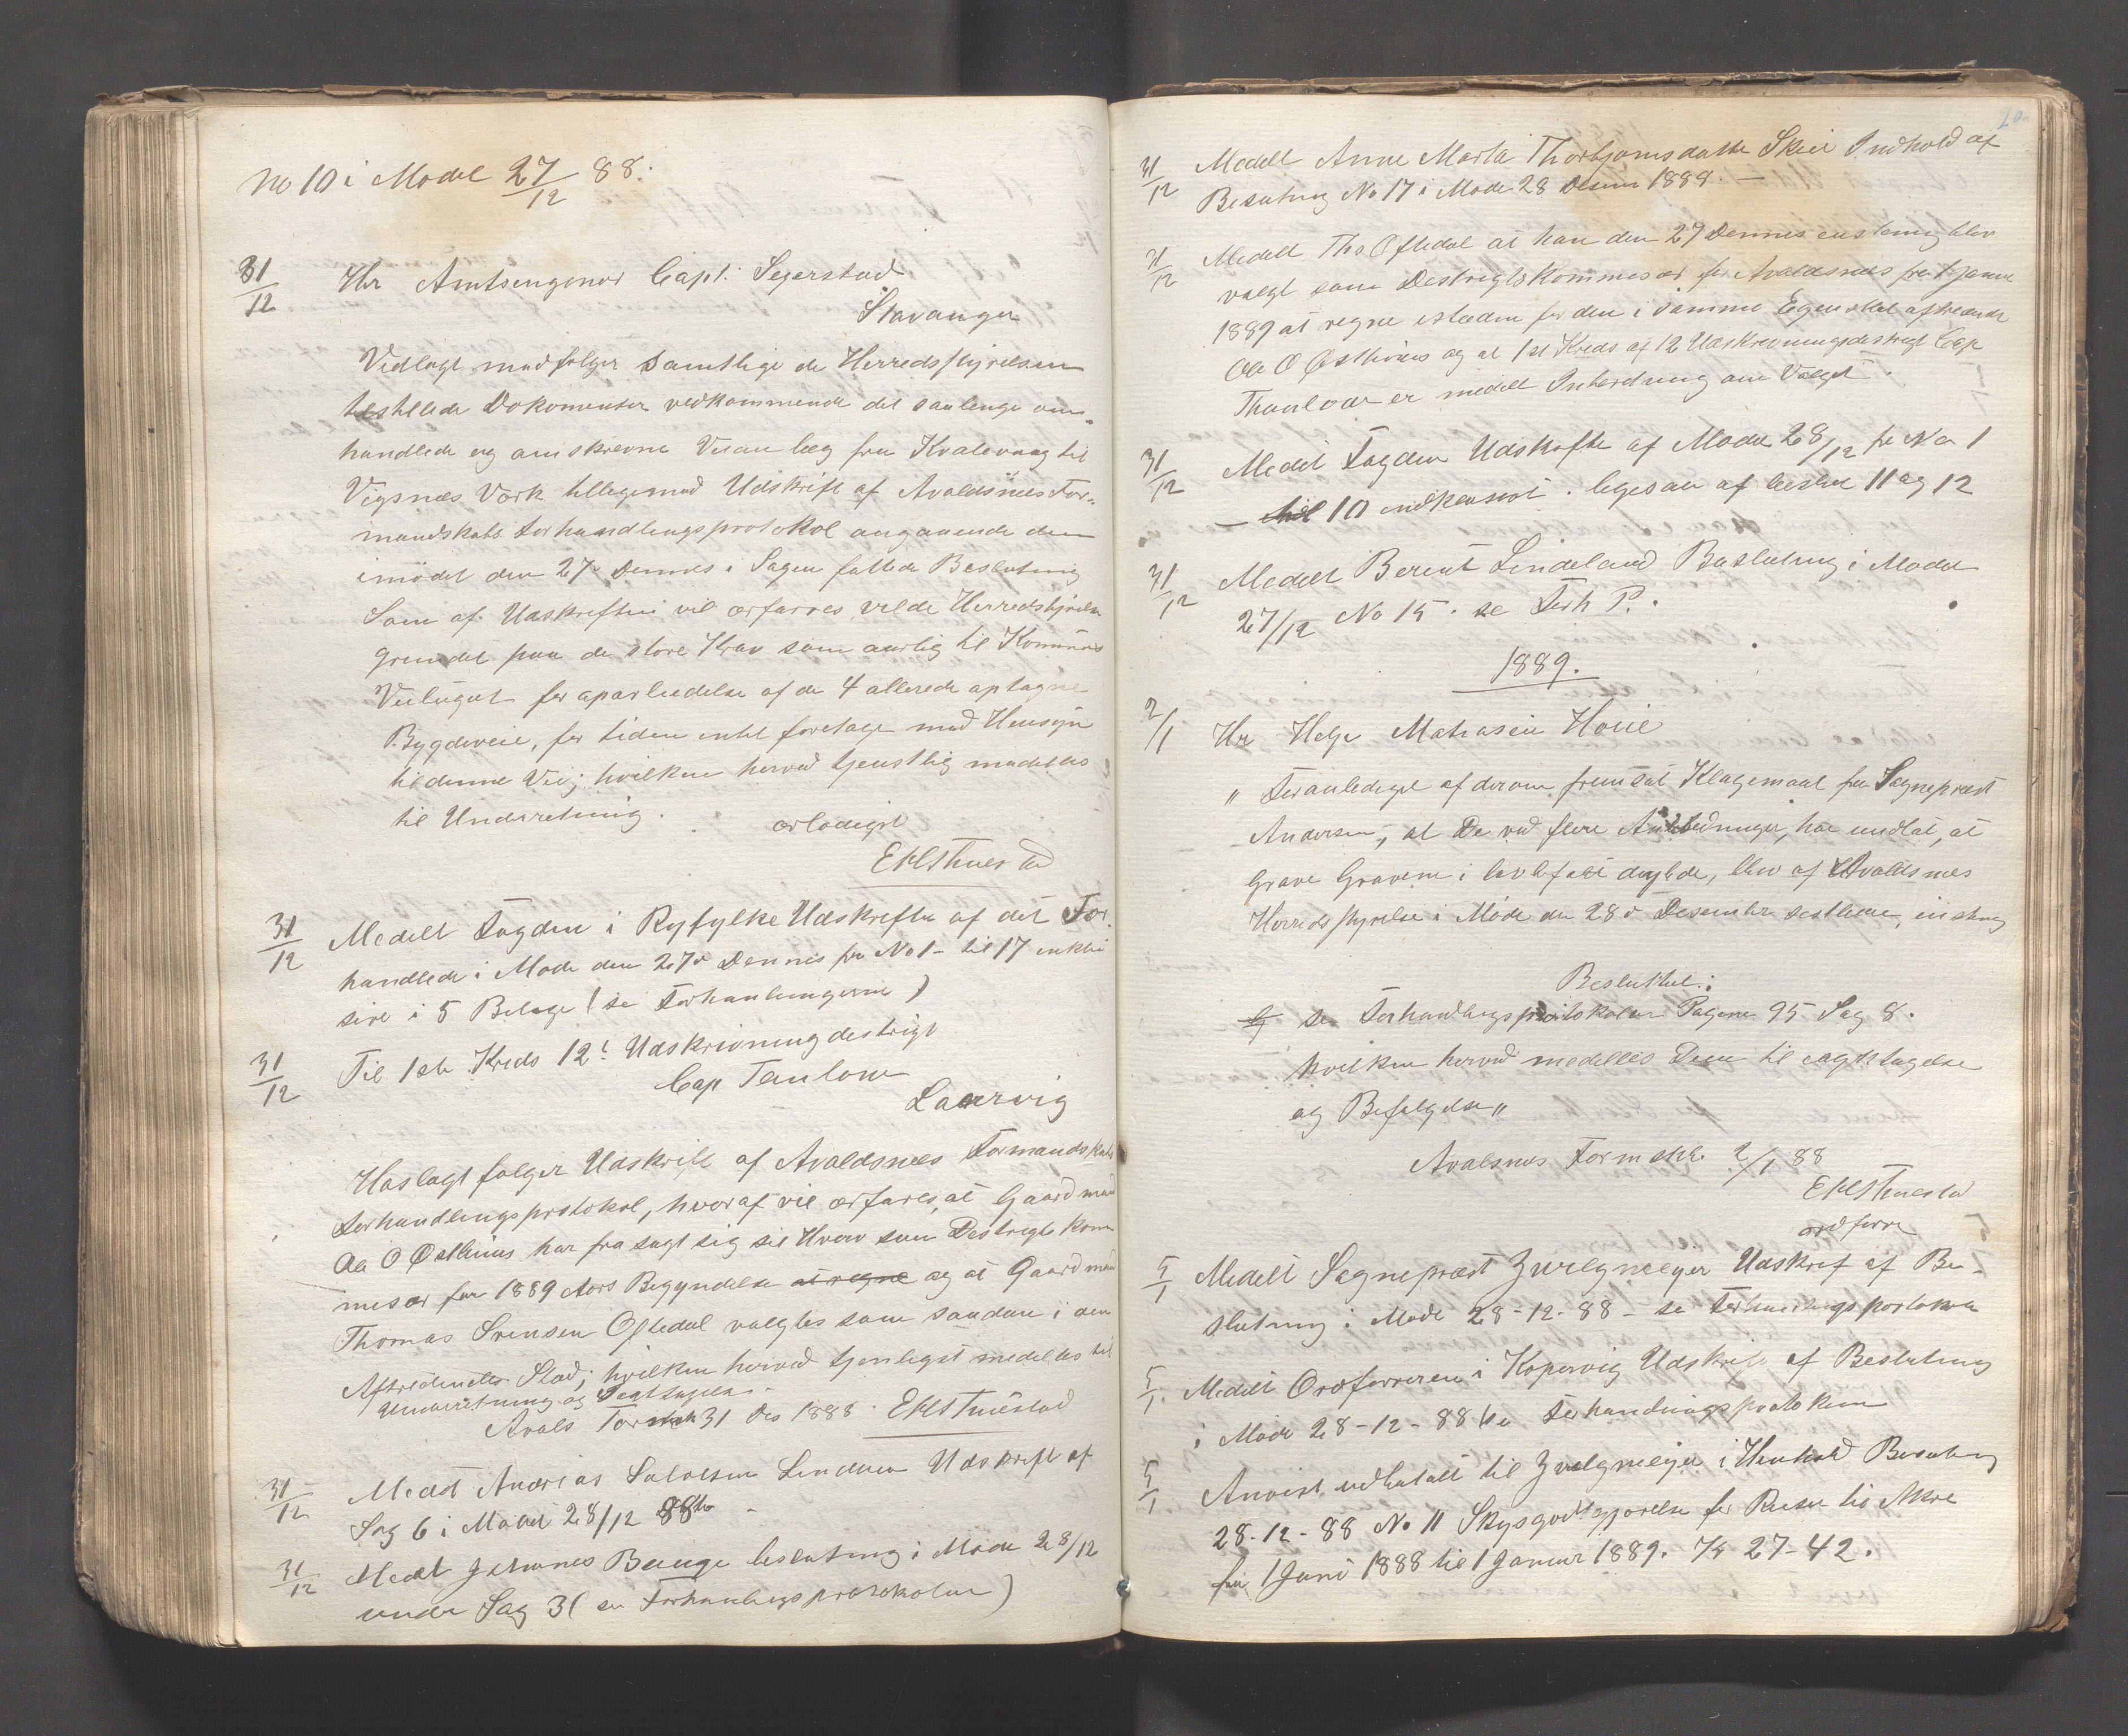 No 10 i Mødel 27/12 88.
31/12 Hr Amtsengenør Capt. Segerstad
Stavanger
Vedlagt medfølger Samtlige de Herredsstyrelsen
tilstillede Dokomenter vedkommende det saalenge om-
handlede og omskrevne Veianlæg fra Kvalevaag til
Vigsnæs Værk tillegemed Udskrift af Avaldsnæs For-
mandskabs Forhandlingsprotokol angaaende den
i mødet den 27de Dennes i Sagen fattede Beslutning
Som af Udskriften vil erfarres vilde Herredstyrelsen
grundet paa de store Krav som aarlig til Kommunes
for oparbeidelse af de 4 allerede optagne
Bygdeveie, for tiden intet foretage med Hensyn
til denne Vei; hvilken herved tjenstlig meddeles
til Underretning.
ærbødigst
31/12 Medelt Fogden i Ryfylke Udskrifter af det For-
handlede i Møde den 27de Dennes fra No 1 - til 17 inklu
sive i 5 Belage (se Forhanlingerne)
31/12 Til 1ste Kreds 12t Udskrivningdestrigt
Cap Taulow
Laurvig
Hoslagt følger Udskrift af Avaldsnes Formandskabs
Forhandlingsprotokol, hvoraf vil erfares, at Gaardmand
Aa O Østhuus har fra sagt sig sit Hverv som Destrigts kom
misær fra 1889 Aars Begyndelse at regne og at Gaardmand
Thomas Svensen Oftedal valgtes som saadan i den
Aftrædendes Stad; hvilken herved tjenligst meddeles til
Underretning og Iagttagelse.
Avals Formsk 31 Des 1888.
31/12 Medelt Andreas Udskrift af
Sag 6 i Mødet 28/12 88
31/12 Medelt Johannes Bauge beslutning i Møde 28/12
under Sag 3 (se Forhanlingsprotokolen)
31/12 Medelt Anne Marta Thorbjørnsdatter Skeie Indhold af
Beslutning No 17 i Møde 28 Desemr 1888. —
31/12 Medelt Ths Oftedal at han den 27 Dennes enstemig blev
valgt som Destrigtskommesær for Avaldsnæs fra 1 januar
1889 at regne isteden for den i samme Egenskab aftrædende
Aa O Østhuus og at 1st Kreds af 12 Udskrivningsdestrigt Cap
Thaulow er medelt Underetning om Valget.
31/12 Medelt Fogden Udskrifter af Mødet 28/12 fra No 1
— til 10 . ligesaa af beslut 11 og 12
31/12 Medelt Berent Lindeland Beslutning i Mødet
27/12 No 15. se Forh P.
1889.
2/1 Hr Helge Matiasen Høie
" Foranlediget af derom fremsat Klagemaal fra Sogneprest
Andersen, at De ved flere Anledninger, har undlat, at
Grave Gravene i lovbefalet dybde, blev af Avaldsnes
Herredsstyrelse i Møde den 28de Desember sestlede, enstemig
Besluttet:
se Forhandlingsprotokolen Pagina 95 Sag 8.
hvilken herved meddelles Dem til iagttagelse
og Befølgelse"
Avalsnes Formskb. 2/1 88
ordførre
5/1 Medelt Sogneprest Zwilgmeyer Udskrif af Be-
slutning i Møde 28-12-88 - se Forhandlingsportokolen
5/1 Medelt Ordførreren i Kopervig Udskrift af Beslutning
i Møde 28-12-88 se Forhandlingsprotokolen
5/1 Anvist udbetalt til Zwilgmeyer i Henhold Beslutning
28-12-88 No 11 Skysgodtgjørelse for Reiser til Akre
fra 1 Juni 1888 til 1 Januar 1889. Kr 27-42.